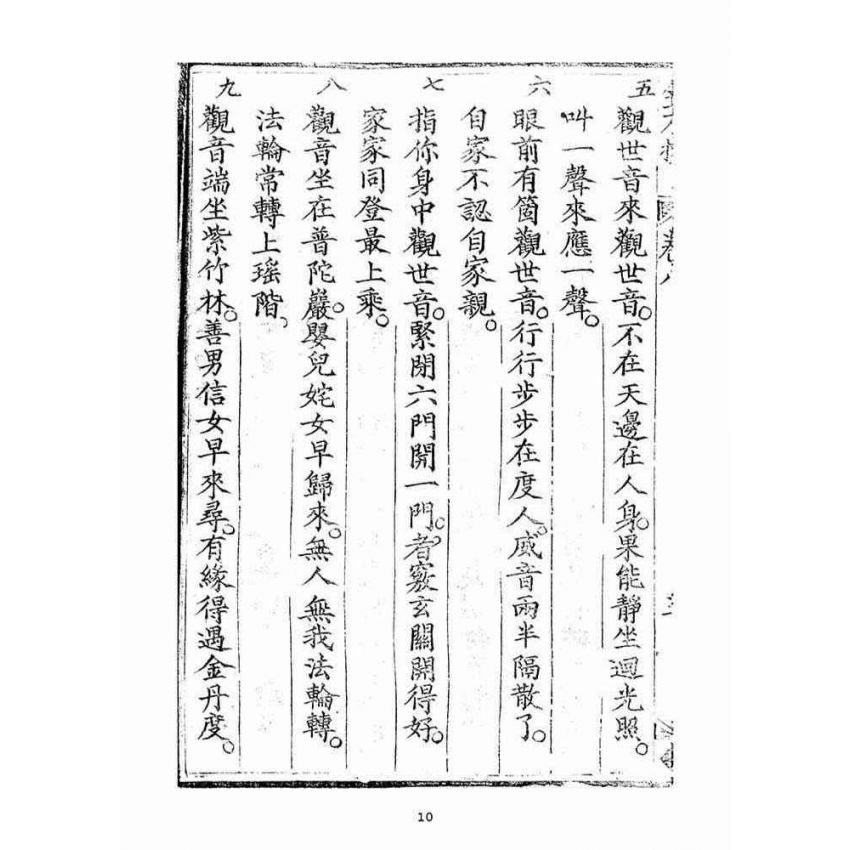 五
觀世音來觀世音。不在天邊在人身。果能靜坐迴光照。
叫一聲來應一聲。
六
眼前有箇觀世音。行行步步在度人。威音兩半隔散了。
自家不認自家親。
七
指你身中觀世音。緊閉六門開一門。者竅玄關開得好。
家家同登最上乘。
八
觀音坐在普陀巖。嬰兒姹女早歸來。無人無我法輪轉。
法輪常轉上瑤階。
九
觀音端坐紫竹林。善男信女早來尋。有緣得遇金丹度。
10